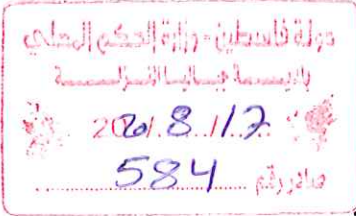 دولة فلسطين - وزارة الحكم المحلي
بلديـــة جباليا النـزلـــة
8
صادر رقم 584